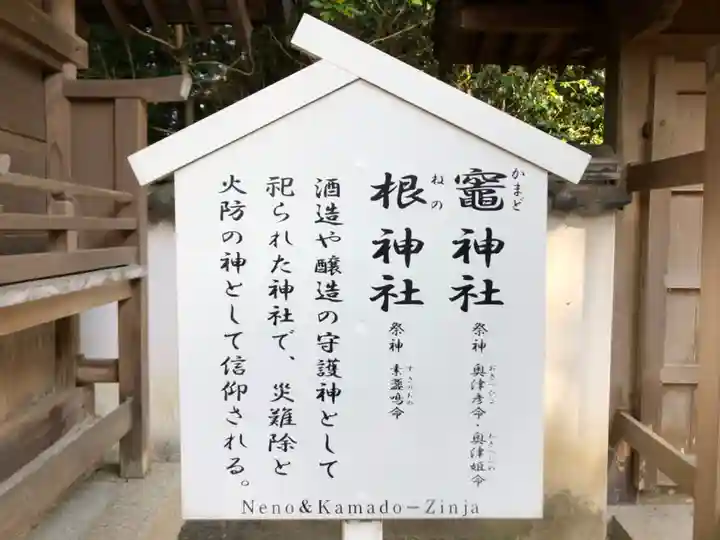 竈神社 祭神 奥津彦命・奥津姫命
かまど
根神社 祭神 素盞鳴命
ねの
すさのおの
酒造や醸造の守護神として
祀られた神社で、災難除と
火防の神として信仰される。
Neno&Kamado-Zinja